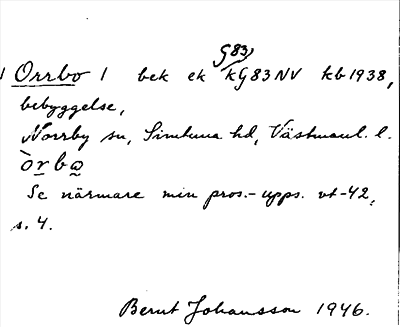 G83)
1 Orrbo 1 bek ek kG83NV kb 1938,
bebyggelse,
Norrby sn, Simtuna hd, Västmanl. l.
òrbo
Se närmare min pros.-upps. vt-42,
s. 4.
Bernt Johansson 1946.